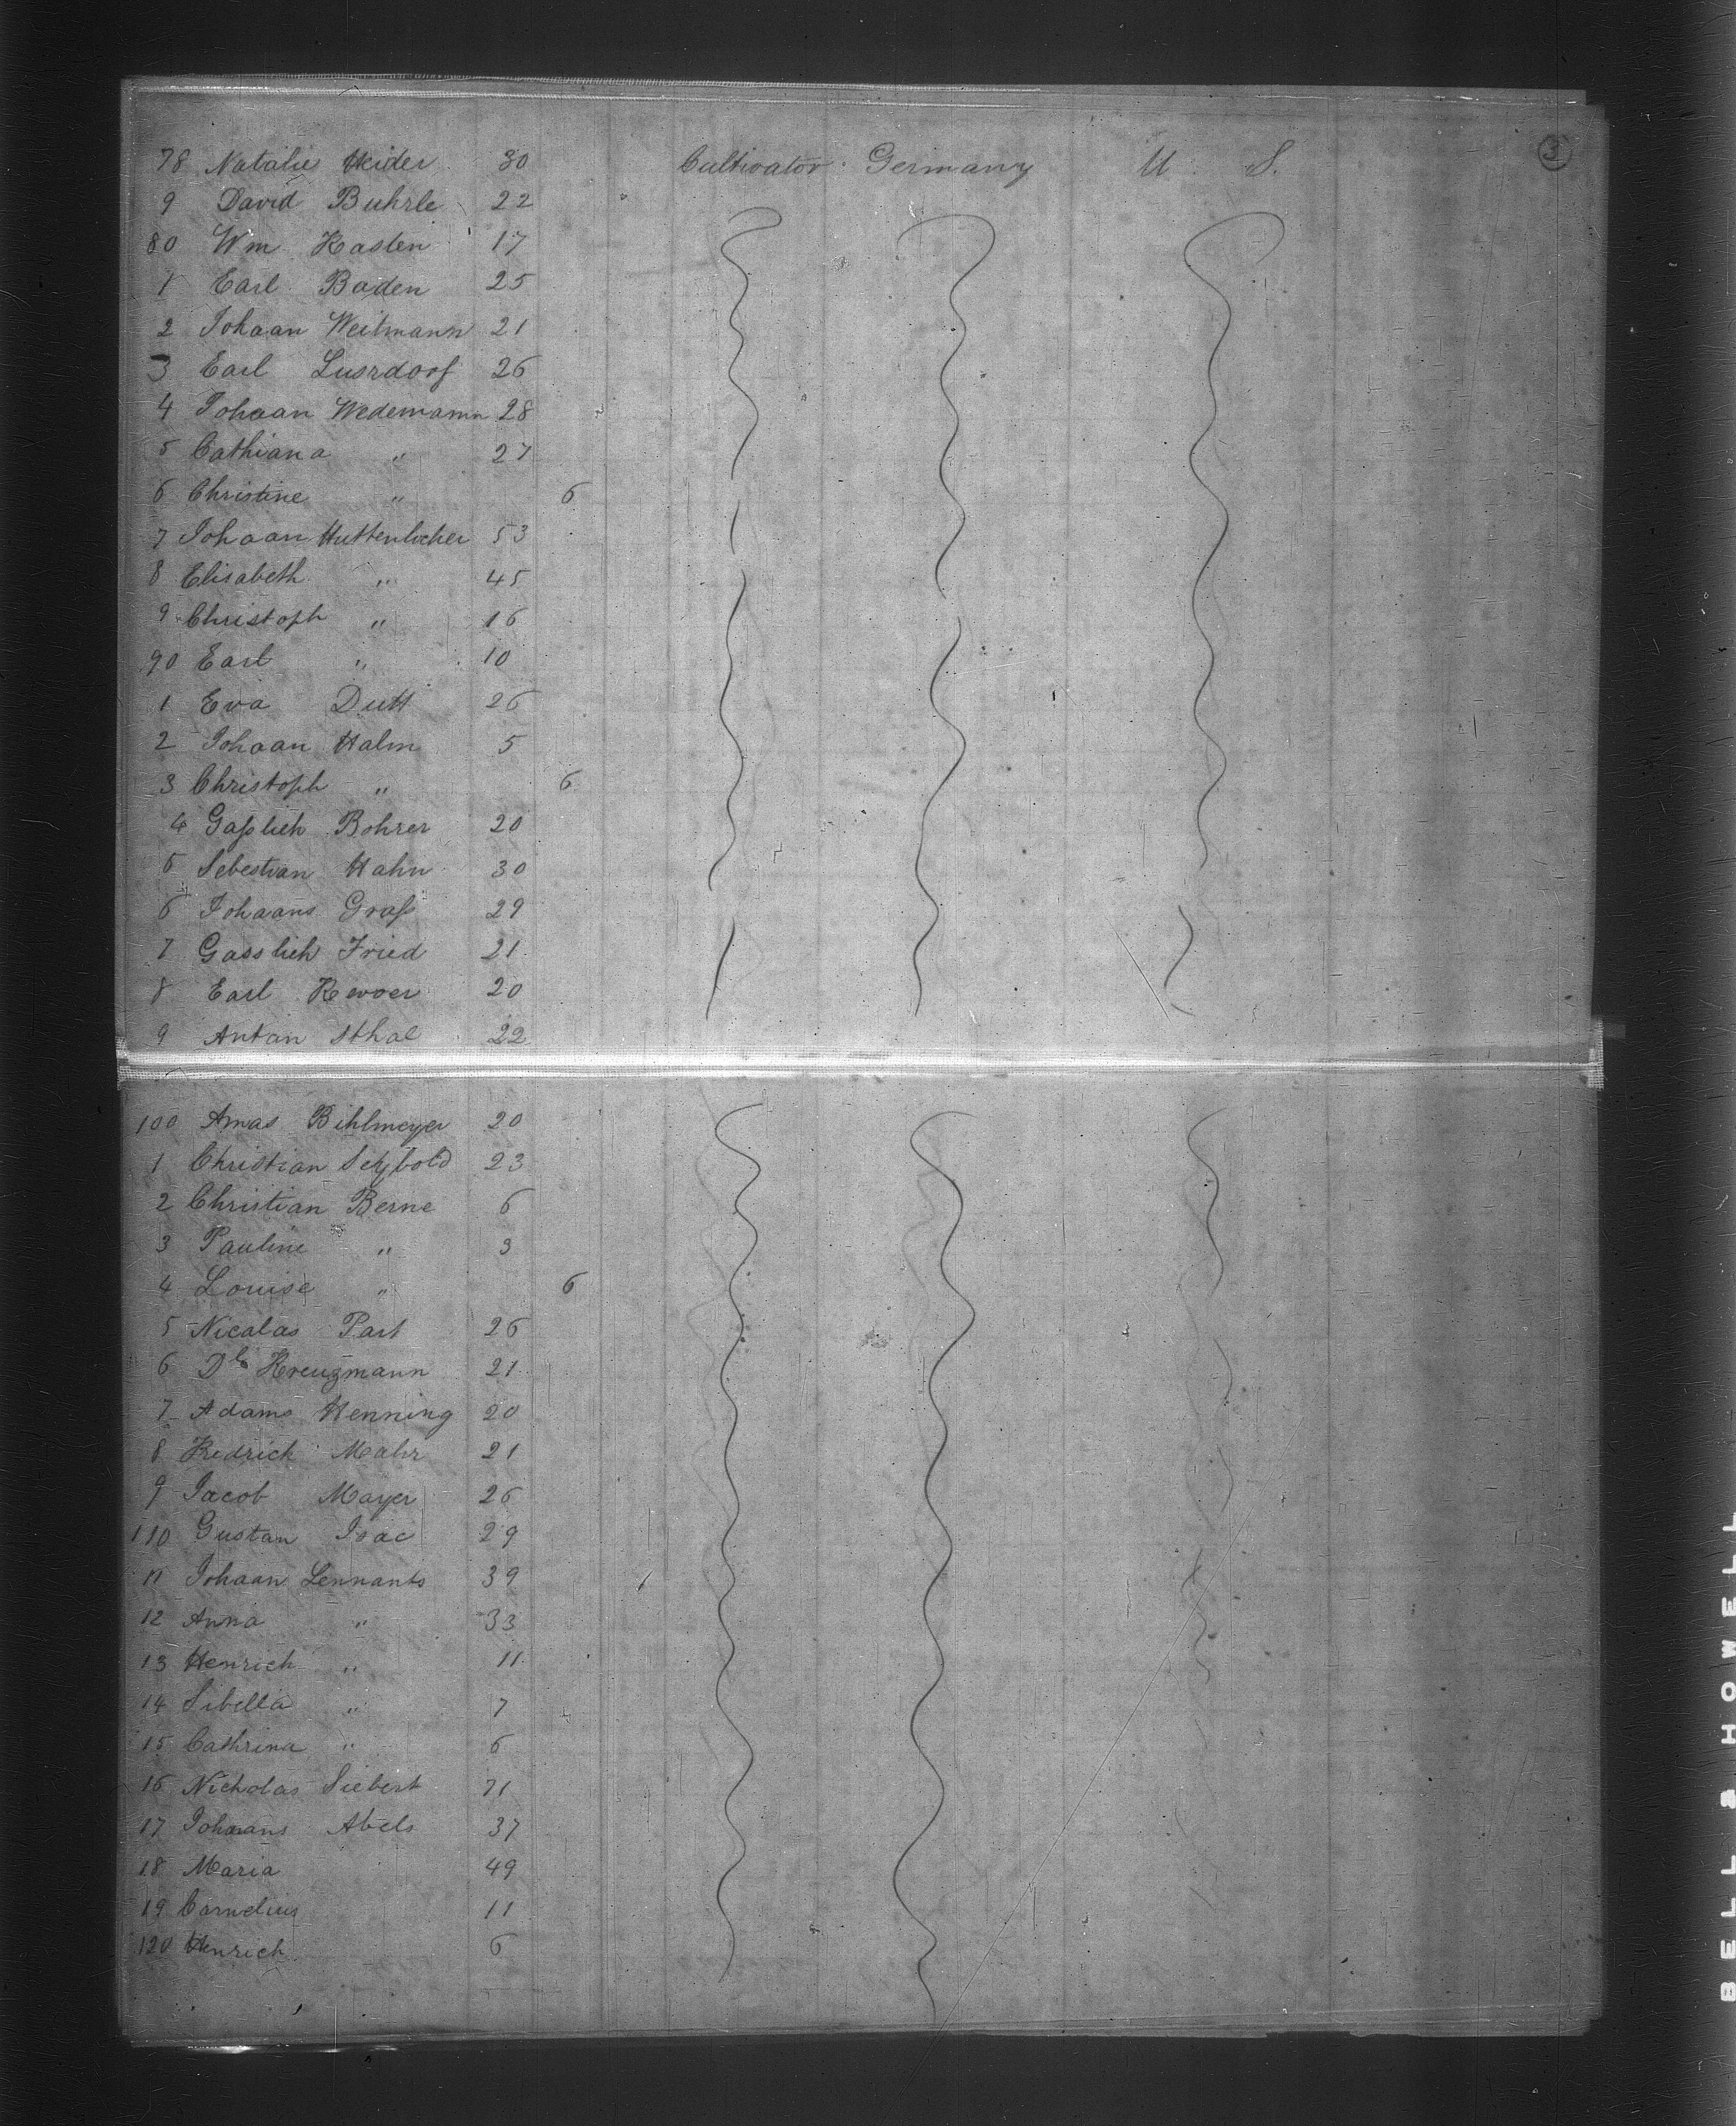 3
78 Natalie Heider 30 Cultivator Germany U. S.
9 David Buhrle 22
80 Wm Kasten 17
1 Earl Baden 25
2 Johaan Weitmann 21
3 Earl Lusrdoof 26
4 Johaan Wedemann 28
5 Cathiana " 27
6 Christine " 6
7 Johaan Huttenlocher 53
8 Elisabeth " 45
9 Christoph " 16
90 Earl " 10
1 Eva Dutt 26
2 Johaan Halm 5
3 Christoph " 6
4 Gasslieh Bohrer 20
5 Sebestian Hahn 30
6 Johaans Grass 29
7 Gasslieh Fried 21
8 Earl 20
9 Antan Sthal 22
100 Amas Bihlmeyer 20
1 Christian Seybold 23
2 Christian Berne 6
3 Pauline " 3
4 Louise " 6
5 Nicalas Part 26
6 Kreuzmann 21
7 Adams Henning 20
8 Fredrich Mahr 21
9 Jacob Mayer 26
110 Gustan Isac 29
11 Johaan Lennants 39
12 Anna " 33
13 Henrich " 11
14 Sibella " 7
15 Cathrina " 6
16 Nicholas Siebert 71
17 Johaans Abels 37
18 Maria 49
19 Cornelius 11
120 Henrich 6
BELL & HOWELL